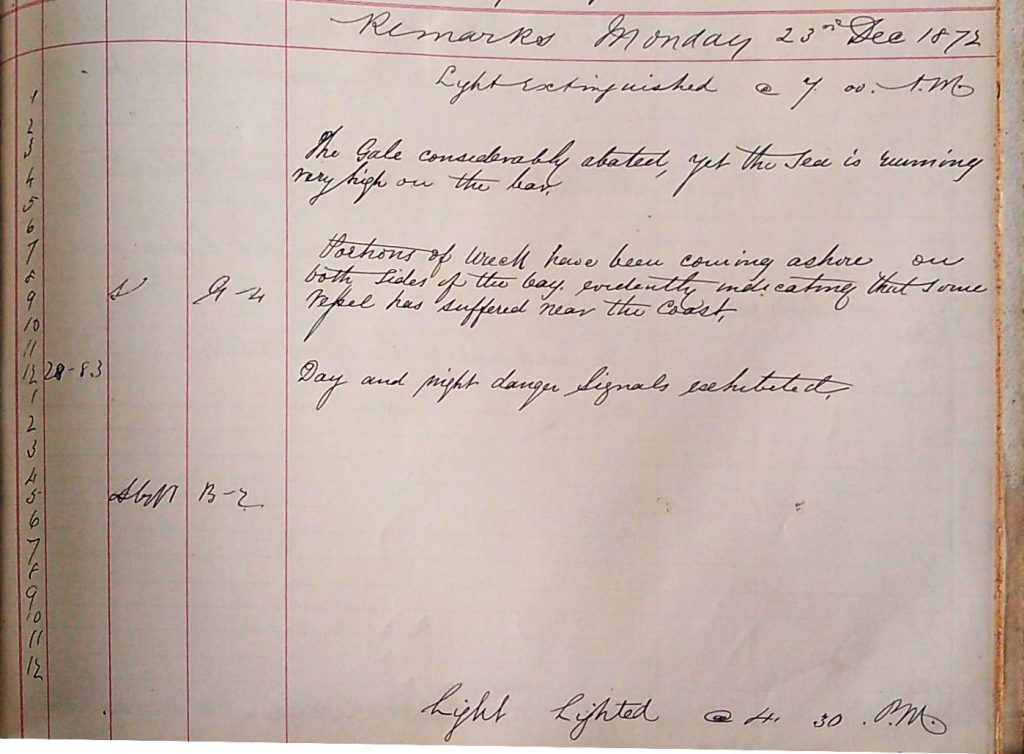 Remarks Monday 23rd Dec 1872
Light Extinguished @ 7 00. A.M.
1
2
3
The Gale considerably abated, yet the Sea is running
4
very high on the bar.
5
6
7
Portions of Wreck have been coming ashore on
8
both Sides of the bay. evidently indicating that some
9 S G-4
Vessel has suffered near the Coast.
10
11
12 28-83
Day and night danger Signals exhibited.
1
2
3
4
5 SbyW B-2
6
7
8
9
10
11
12
Light Lighted @ 4. 30 P.M.